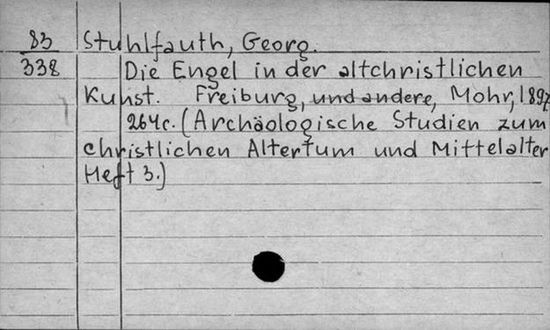 83 Stuhlfauth, Georg.
338 Die Engel in der altchristlichen
Kunst. Freiburg, und andere, Mohr, 1897
264c. (Archäologische Studien zum
christlichen Altertum und Mittelalter
Heft 3.)